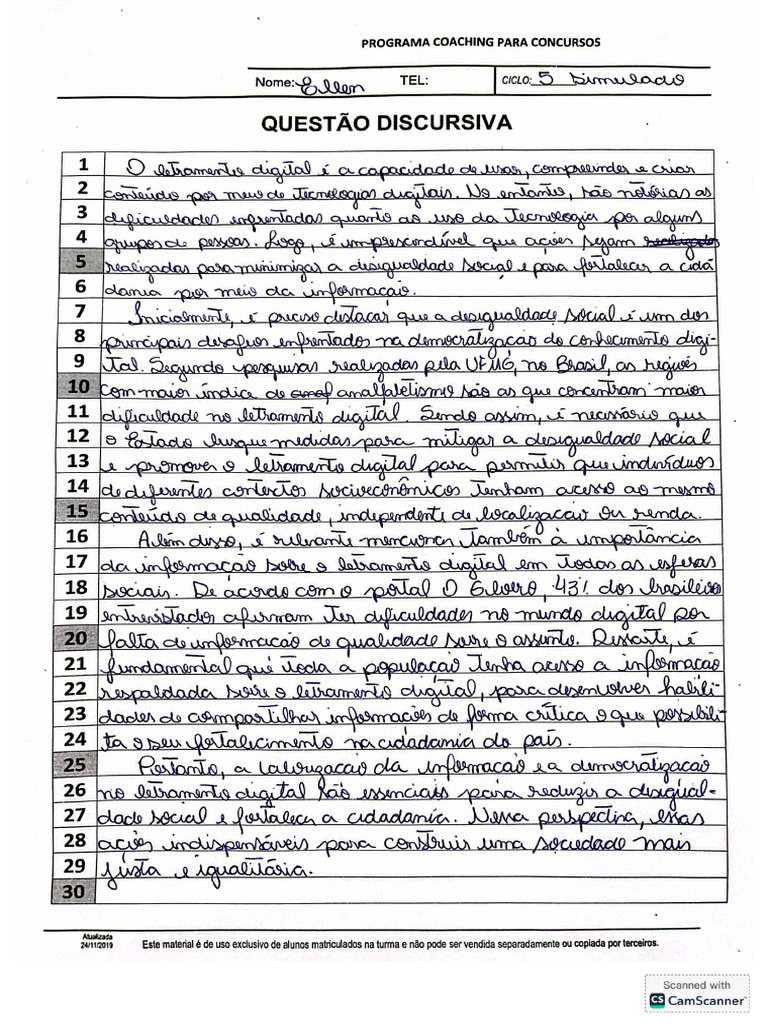 PROGRAMA COACHING PARA CONCURSOS
Nome: Ellen TEL: CICLO: 5 Simulado
QUESTÃO DISCURSIVA
1 O letramento digital é a capacidade de usar, compreender e criar
2 conteúdo por meio de tecnologias digitais. No entanto, são notórias as
3 dificuldades enfrentadas quanto ao uso da tecnologia por alguns
4 grupos de pessoas. Logo, é imprescindível que ações sejam realizadas
5 realizadas para minimizar a desigualdade social e para fortalecer a cida
6 dania por meio da informação.
7 Inicialmente, é preciso destacar que a desigualdade social é um dos
8 principais desafios enfrentados na democratização do conhecimento digi-
9 tal. Segundo pesquisas realizadas pela UFMG, no Brasil, as regiões
10 com maior índice de analfabetismo são as que concentram maior
11 dificuldade no letramento digital. Sendo assim, é necessário que
12 o Estado busque medidas para mitigar a desigualdade social
13 e promover o letramento digital para permitir que indivíduos
14 de diferentes contextos socioeconômicos tenham acesso ao mesmo
15 conteúdo de qualidade, independente de localização ou renda.
16 Além disso, é relevante mencionar também à importância
17 da informação sobre o letramento digital em todas as esferas
18 sociais. De acordo com o portal O Globo, 43% dos brasileiros
19 entrevistados afirmam ter dificuldades no mundo digital por
20 falta de informação de qualidade sobre o assunto. Dessarte, é
21 fundamental que toda a população tenha acesso a informação
22 respaldada sobre o letramento digital, para desenvolver habili
23 dades de compartilhar informações de forma crítica o que possibili
24 ta o seu fortalecimento na cidadania do país.
25 Portanto, a valorização da informação e a democratização
26 no letramento digital são essenciais para reduzir a desigual-
27 dade social e fortalecer a cidadania. Nessa perspectiva, essas
28 ações indispensáveis para construir uma sociedade mais
29 justa e igualitária.
30
Atualizada
24/11/2019
Este material é de uso exclusivo de alunos matriculados na turma e não pode ser vendida separadamente ou copiada por terceiros.
Scanned with
CS CamScanner